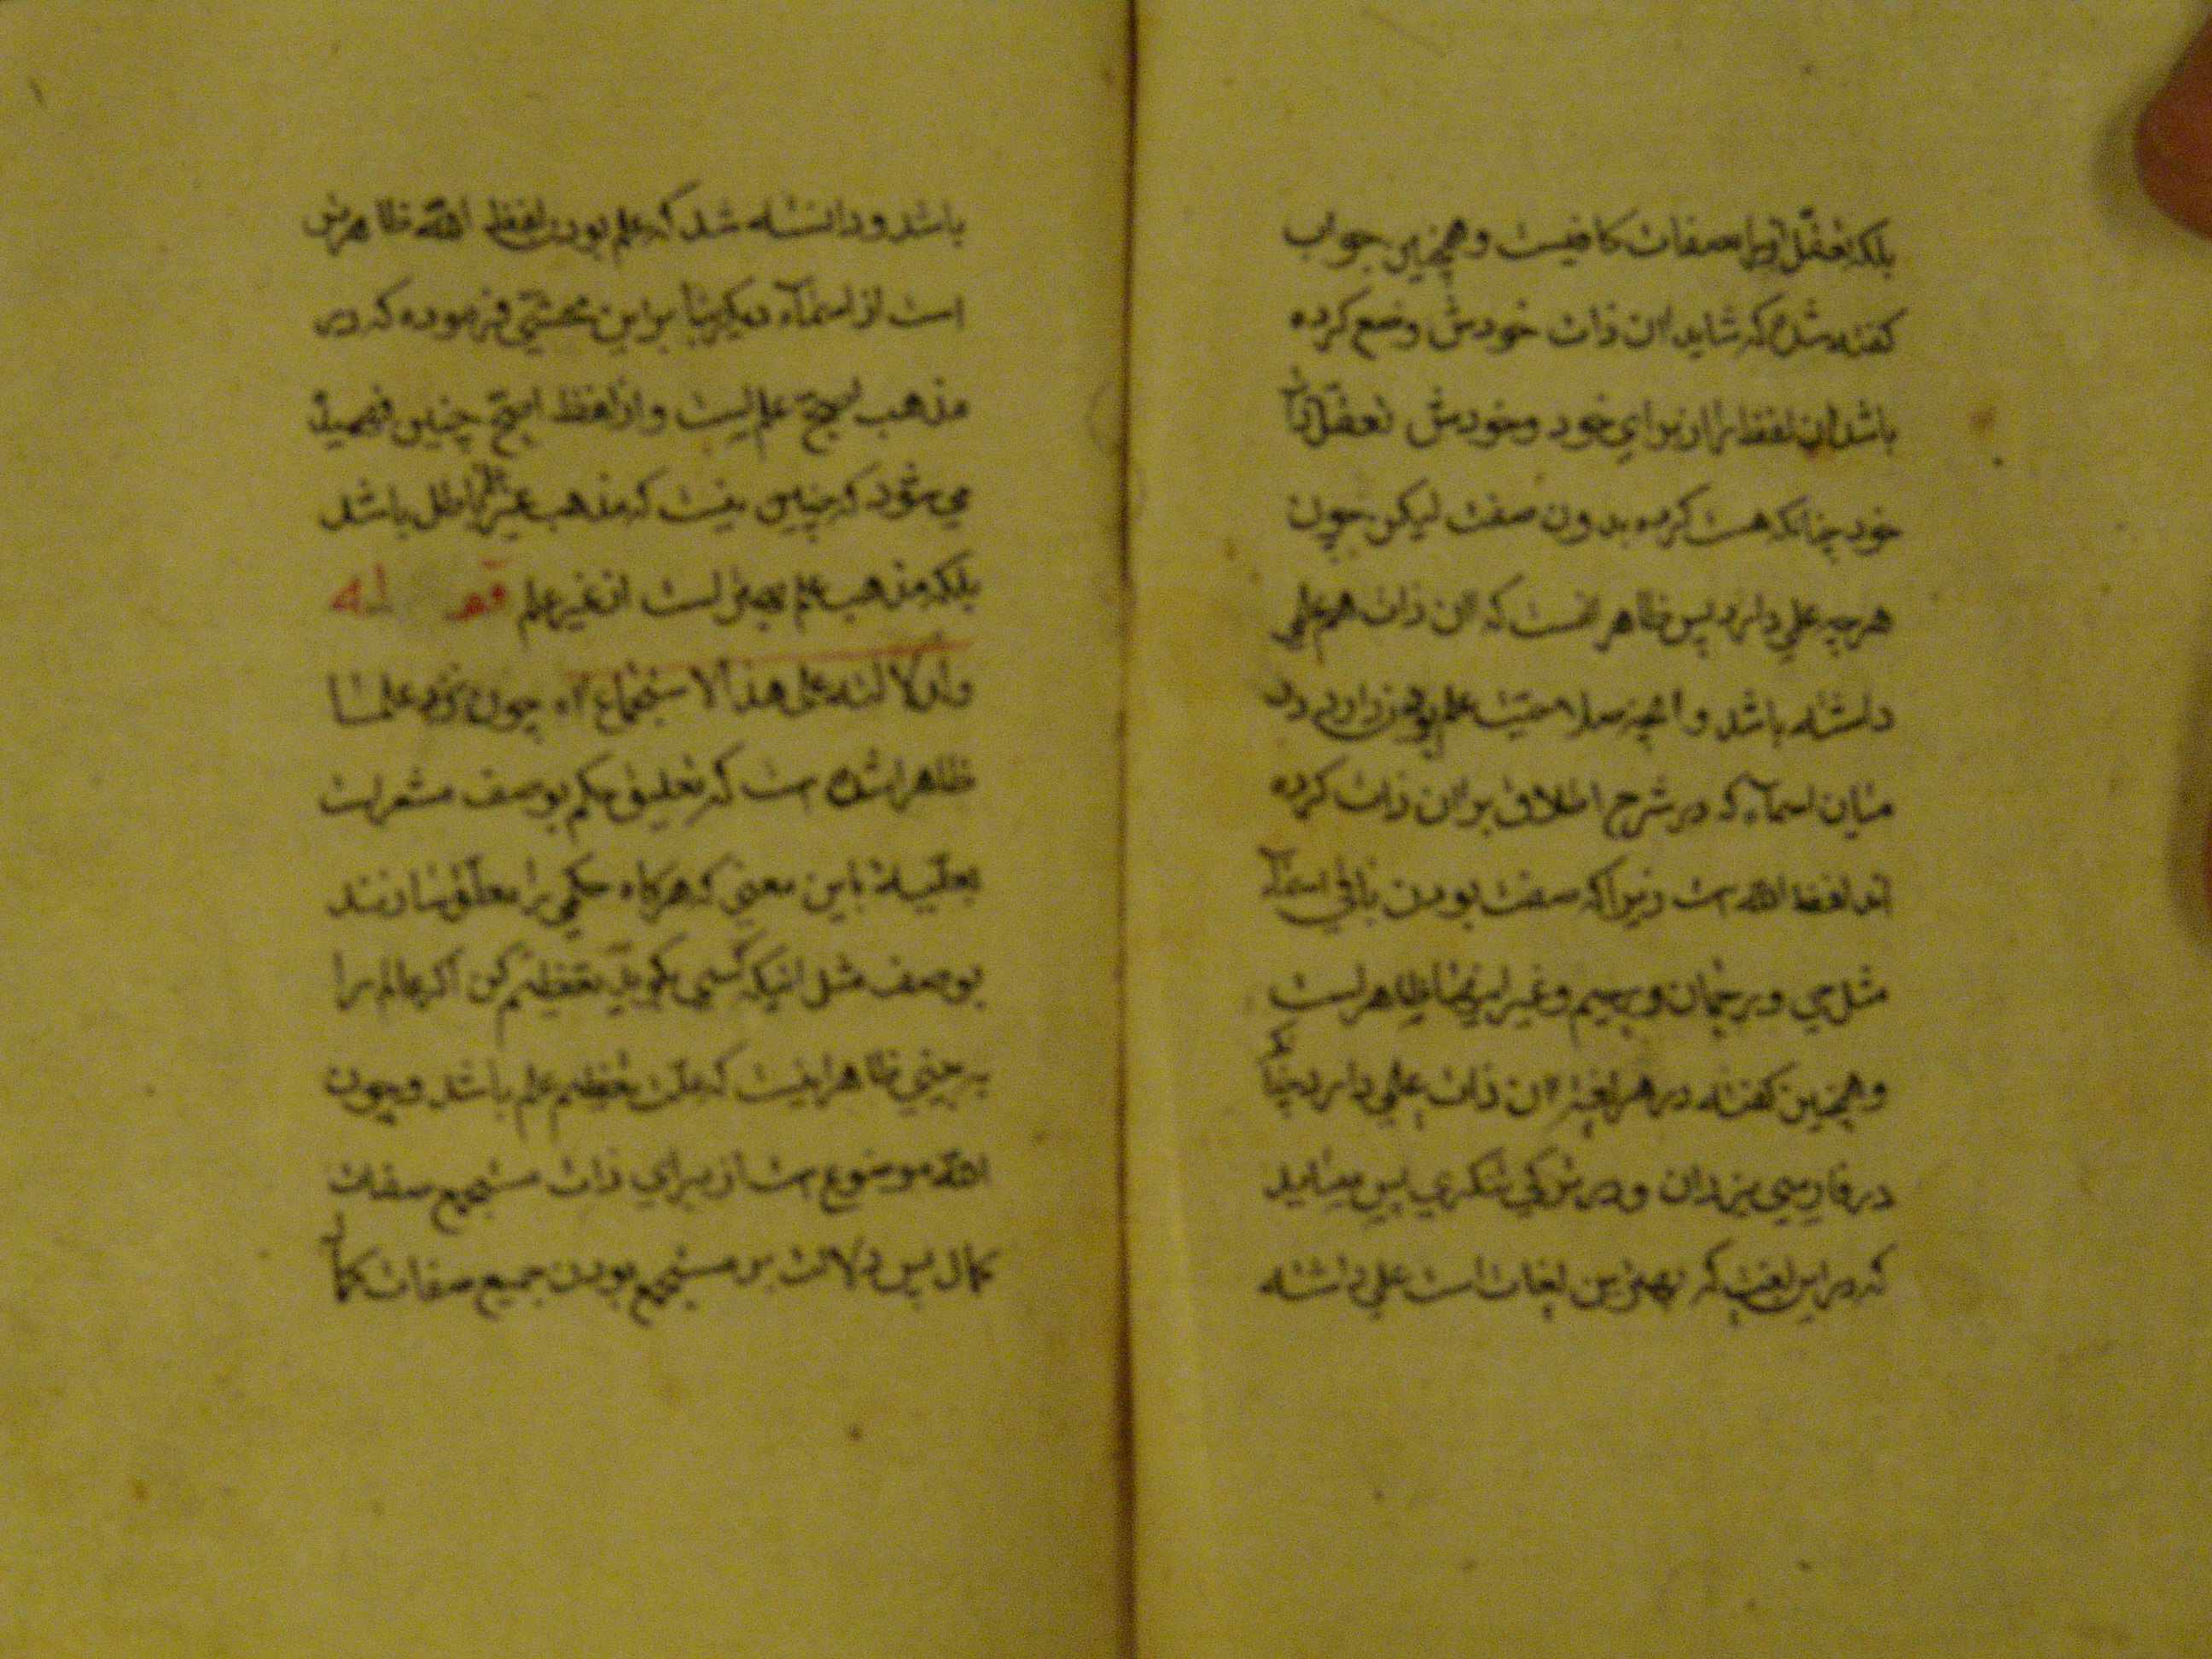 بلکه تعقل او بصفات کافیست وهمچنین جواب
کفته شده که شاید ان ذات خودش وضع کرده
باشد ان لفظ را از برای خود وخودش تعقل ذات
خود چنانکه هست کرده بدون صفت لیکن چون
هرچه علمی دارد پس ظاهر انست که ان ذات هم علمی
داشته باشد و انچه صلاحیت علم بودن دارد در
میان اسماء که در شرع اطلاق بر ان ذات کرده
اند لفظ الله است زیرا که صفت بودن باقی اسماء
مثل حی و رحمان و رحیم وغیر اینها ظاهر است
وهمچنین کفته در هر لغتی ان ذات علمی دارد چنانکه
در فارسی یزدان و در ترکی تنکری پس میباید
که در این لغت که بهترین لغات است علمی داشته
باشد و دانسته شد که علم بودن لفظ الله ظاهرتر
است از اسماء دیکر بنا بر این محشی فرموده که در
مذهب اصح علم است و از لفظ اصح چنین فهمیده
می شود که چنین نیست که مذهب غیر باطل باشد
بلکه مذهب علم بهتر است از غیر علم قوله
ولدلالته على هذا الاستجماع اه چون نزد علما
ظاهر شده است که تعلیق حکم بوصف مشعر است
بعلیت باین معنی که هرکاه حکمی را معلق سازند
بوصف مثل اینکه کسی بکوید تعظیم کن اکر عالم را
برچنین ظاهر اینست که علت تعظیم علم باشد وچون
الله موضوع است از برای ذات مستجمع صفات
کمال پس دلالت بر مستجمع بودن جمیع صفات کمال